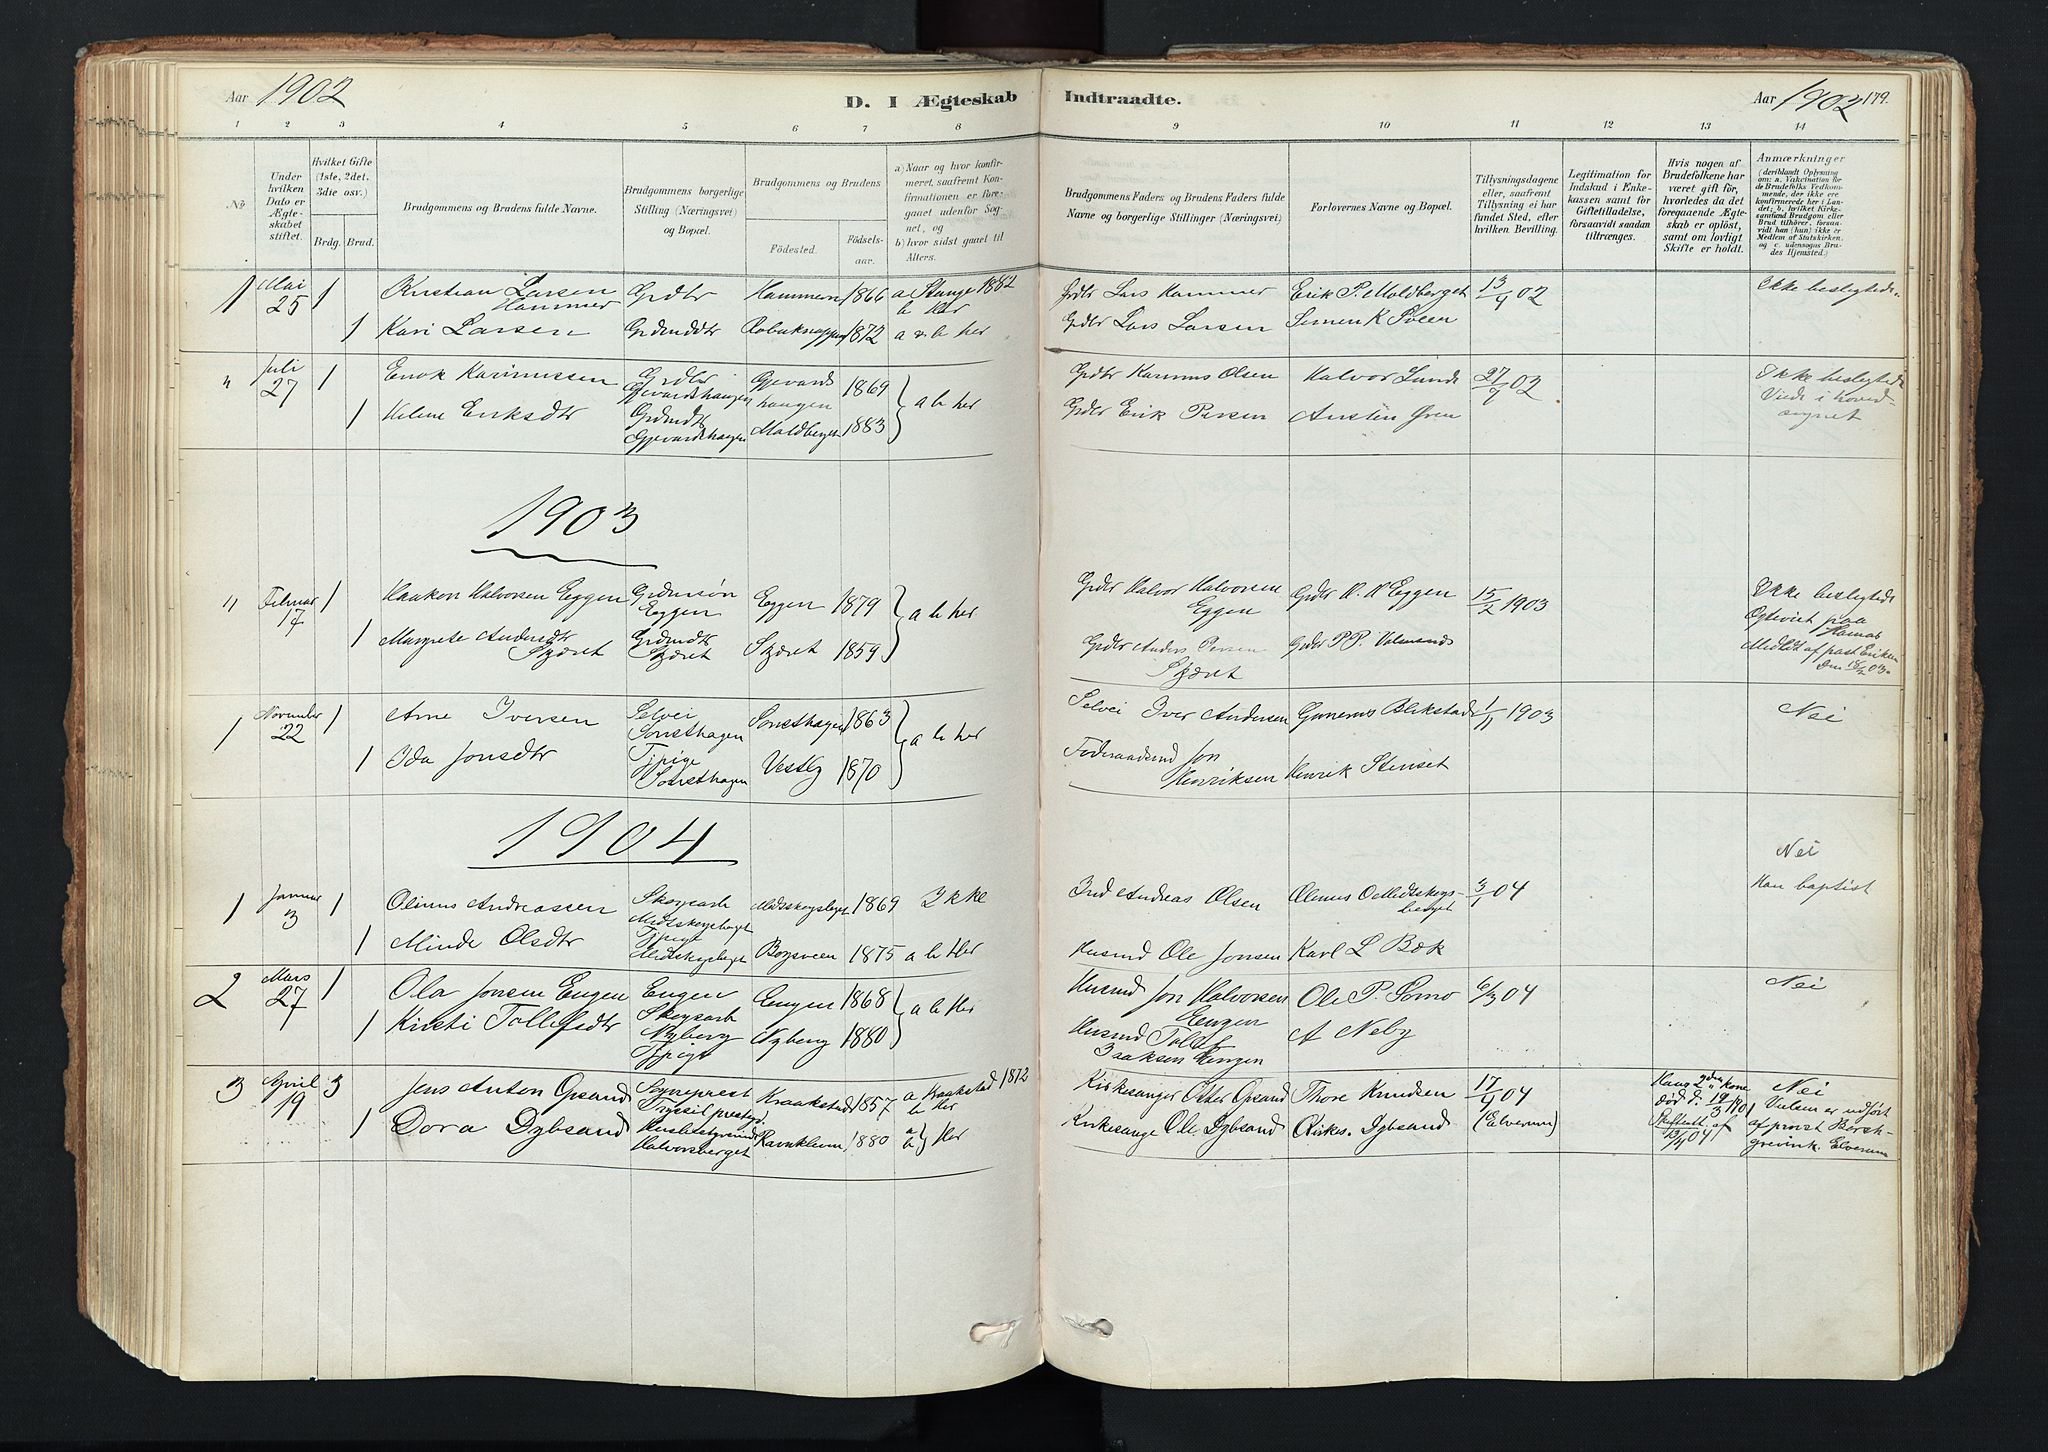 Aar 1902
D. I Ægteskab
Indtraadte.
Aar 1902 179.
1 2 3 4 5 6 7 8
9 10 11 12 13 14
No.
Under hvilken Dato er Ægteskabet stiftet.
Hvilket Gifte (1ste, 2det, 3die osv.)
Brdg. Brud.
Brudgommens og Brudens fulde Navne.
Brudgommens borgerlige Stilling (Næringsvei) og Bopæl.
Brudgommens og Brudens
Fødested.
Fødselsaar.
a) Naar og hvor konfirmeret, saafremt Konfirmationen er foregaaet udenfor Sognet, og
b) hvor sidst gaaet til Alters.
Brudgommens Faders og Brudens Faders fulde Navne og borgerlige Stillinger (Næringsvei)
Forlovernes Navne og Bopæl.
Tillysningsdagene eller, saafremt Tillysning ei har fundet Sted, efter hvilken Bevilling.
Legitimation for Indskud i Enkekassen samt for Giftetilladelse, forsaavidt saadan tiltrænges.
Hvis nogen af Brudefolkene har været gift før, hvorledes da det foregaaende Ægteskab er opløst, samt om lovligt Skifte er holdt.
Anmærkninger (deriblandt Oplysning om: a. Vakcination for de Brudefolks Vedkommende, der ikke ere konfirmerede her i Landet; b. hvilket Kirkesamfund Brudgom eller Brud tilhører, forsaavidt han (hun) ikke er Medlem af Statskirken, og c. udensogns Brudes Hjemsted.)
1 Mai 25 1 Kristian Larsen Hammer Grdbr Hammeren 1866 a Stange 1882 b Her
Grdbr Lars Hammer Erik P. Moldberget 13/4 02 Ikke beslegtede
1 Kari Larsen Grdmdtr 1872 a o b her
Grdbr Lars Larsen Simen K Sveen
Juli 27 1 Enok Karinussen Grdbr Gjevardshaugen Gjevardshaugen 1869 a b her
Grdbr Karinus Olsen Halvor Lunde 27/7 02 Ikke beslegtede
1 Helene Eriksdtr Grdmdtr Gjevardshaugen Moldberget 1883
Grdbr Erik Persen Austin Øren Viede i hovedsognet
1903
Februar 17 1 Haakon Halvorsen Eggen Grdmsøn Eggen Eggen 1879 a b her
Grdbr Halvor Halvorsen Eggen Grdbr H. H Eggen 15/2 1903 Ikke beslegtede
1 Margrete Andersdtr Skjæret Grdmdtr Skjæret Skjæret 1859
Grdbr Anders Persen Skjæret Grdbr P. P. Egteviet paa Hamar
af past Eriksen den 18/2 03.
1 November 22 1 Arne Iversen Selvei Sonsthagen Sonsthagen 1863 a b her
Selvei Iver Andersen Gunerius Blikstad 1/11 1903 Nei
1 Ida Jonsdtr Tjpige Sonsthagen Vestby 1870
Føderaadsmd Jon Henriksen Henrik Stenset
1904
1 Januar 3 1 Olinus Andreassen Skogsarb Medskogsberget Medskogsberget 1869 Ikke
Ind Andreas Olsen Olinus O Medskogsberget 3/1 04 Nei
Han baptist
1 Minda Olsdtr Tjpige Medskogsberget Bogsveen 1875 a b Her
Husmd Ole Jonsen Karl L Bæk
2 Mars 27 1 Ola Jonsen Engen Engen Skogsarb Engen 1868 a b Her
Husmd Jon Halvorsen Engen Ole P. Somo 6/3 04 Nei
1 Kristi Tollefsdtr Nyberg Tjpige Nyberg 1880
Husmd Tollef Isaksen Kengen A Neby
3 April 19 3 Jens Anton Opsand Sogneprest Trysil prestegj. Kraakstad 1857 a Kraakstad 1872 b Her
Kirkesanger Otter Opsand Thore Knudsen 17/4 04 (Elverum) Hans 2den kone død d. 19/3 1901 Skifteatt. af 13/4 04 Nei
1 Dora Dybsand Husbestyrerinde Halvorsberget Ravnkleven 1880 a b Her
Kirkesange Ole Dybsand Kirkes. Dybsand Vielsen er udført af provst Borchgrevink. Elverum